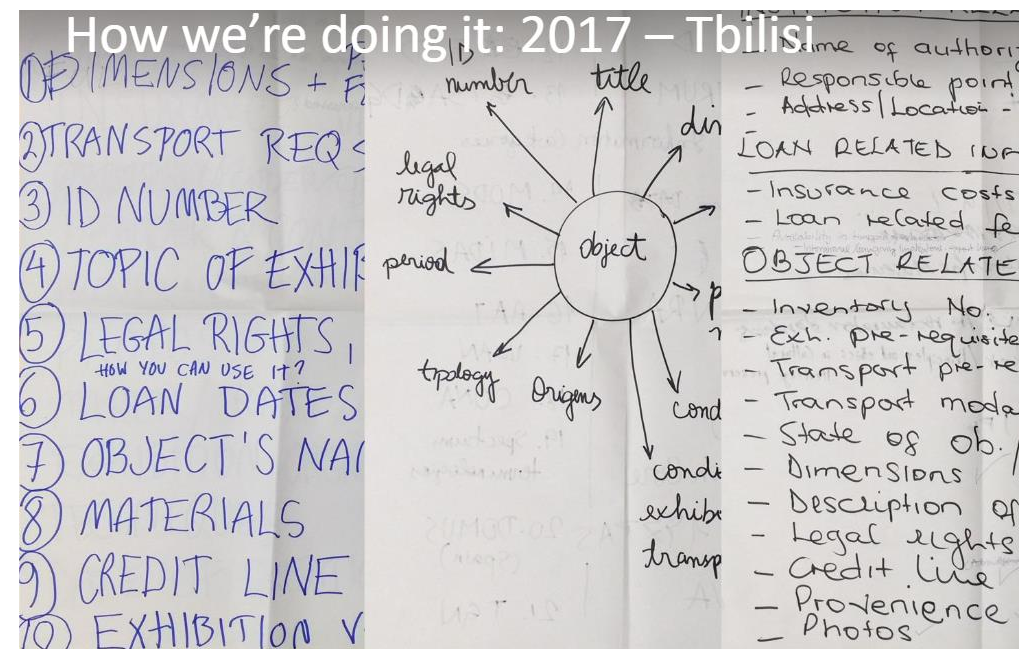 How we're doing it: 2017 – Tbilisi
① DIMENSIONS +
② TRANSPORT REQS
③ ID NUMBER
④ TOPIC OF EXHI
⑤ LEGAL RIGHTS,
HOW YOU CAN USE IT?
⑥ LOAN DATES
⑦ OBJECT'S NA
⑧ MATERIALS
⑨ CREDIT LINE
⑩ EXHIBITION V
ID
number
title
legal
rights
period
object
tipology
Origens
cond
condi
exhibi
transp
- Name of authori
- Responsible point
- Address/Location -
LOAN RELATED INF
- Insurance costs
- Loan related fe
OBJECT RELATE
- Inventory No.
- Exh. pre-requisite
- Transport pre-re
- Transport moda
- State of ob.
- Dimensions
- Description of
- Legal rights
- Credit line
- Provenience
- Photos